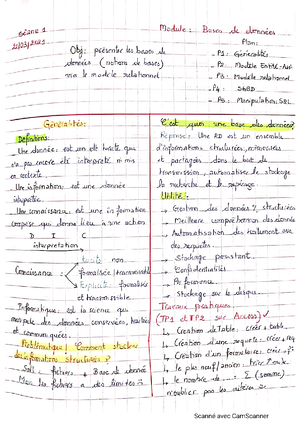 Séance 1
21/03/2023
Module : Bases de données
Obj : présenter les bases de
données (notions de bases)
via le modèle relationnel
Plan :
- P1 : Généralités
- P2 : Modèle Entité-Ass
- P3 : Modèle relationnel
- P4 : SGBD
- P5 : Manipulation SQL
Généralités :
Définitions :
Une donnée : est un élt traité que
n'a pas encore été interprété ni mis
en contexte
Une information : est une donnée
interprétée.
Une connaissance : est une information
comprise qui donne lieu à une action
D I C
interprétation
tacite non
Connaissance formalisée transmissible
explicite formalisée
et transmissible.
Informatique : est la science qui
manipule des données, conservées, traitées
et communiquées.
Problématique ! Comment stocker
des informations structurées ?
Sol : fichiers + Base de donnée
Mais les fichiers a des limites
C'est quoi une base des données ?
Réponse : Une BD est un ensemble
d'informations structurées, 
et partagées dans le but de
transmission, automatiser le stockage
la recherche et le
Utilité :
→ Gestion des données structurées
→ Meilleure compréhension des données
→ Automatisation des traitement
des requêtes.
→ Stockage persistant.
→ Confidentialités
→ Performance.
→ Stockage sur le disque.
Travaux pratiques
(TP1 et TP2 sur Access) ✓
↳ Création de Table : créer à table
↳ Création d'une requête : créer à req
↳ Création d'un formulaire : créer
↳ le plus neuf/ancien :
↳ le nombre de ... : Σ (somme)
n'oublier pas les critères
Scanné avec CamScanner